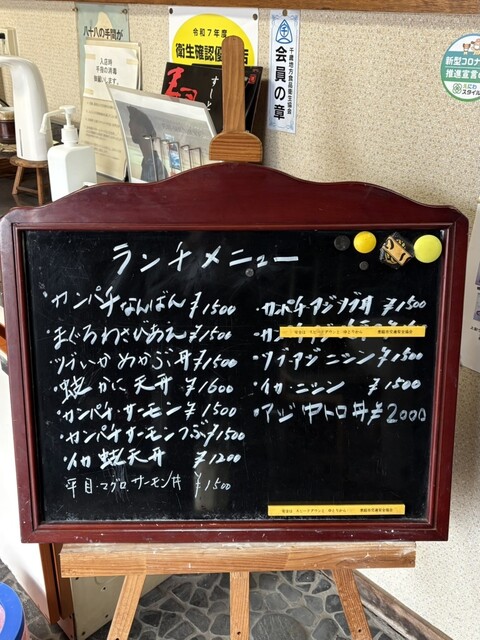 八十八の手間が
令和7年度
衛生確認優
店
千歳地方食品衛生協会
会員の章
新型コロナ
推進宣言の
スタイル
入店時
手指の消毒
すし
ランチメニュー
・カンパチなんばん ¥1500
・まぐろわさびあえ ¥1500
・ツブいかめかぶ丼 ¥1500
・蛯かに天丼 ¥1600
・カンパチ・サーモン ¥1500
・カンパチサーモンつぶ ¥1500
・イカ蛯天丼 ¥1200
平目・マグロ サーモン丼 ¥1500
・カンパチアジツブ丼 ¥1500
・カン
・ツブ・アジ ニシン ¥1500
・イカ・ニシン ¥1500
・アジ中トロ丼 ¥2000